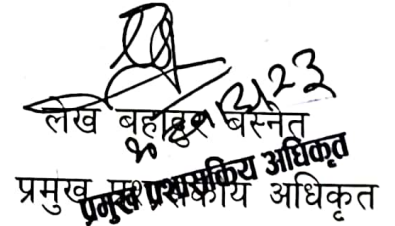 लेख बहादुर बस्नेत
प्रमुख प्रशासकिय अधिकृत
प्रमुख प्रशासकीय अधिकृत